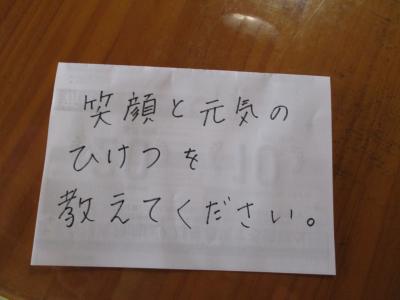 笑顔と元気の
ひけつを
教えてください。